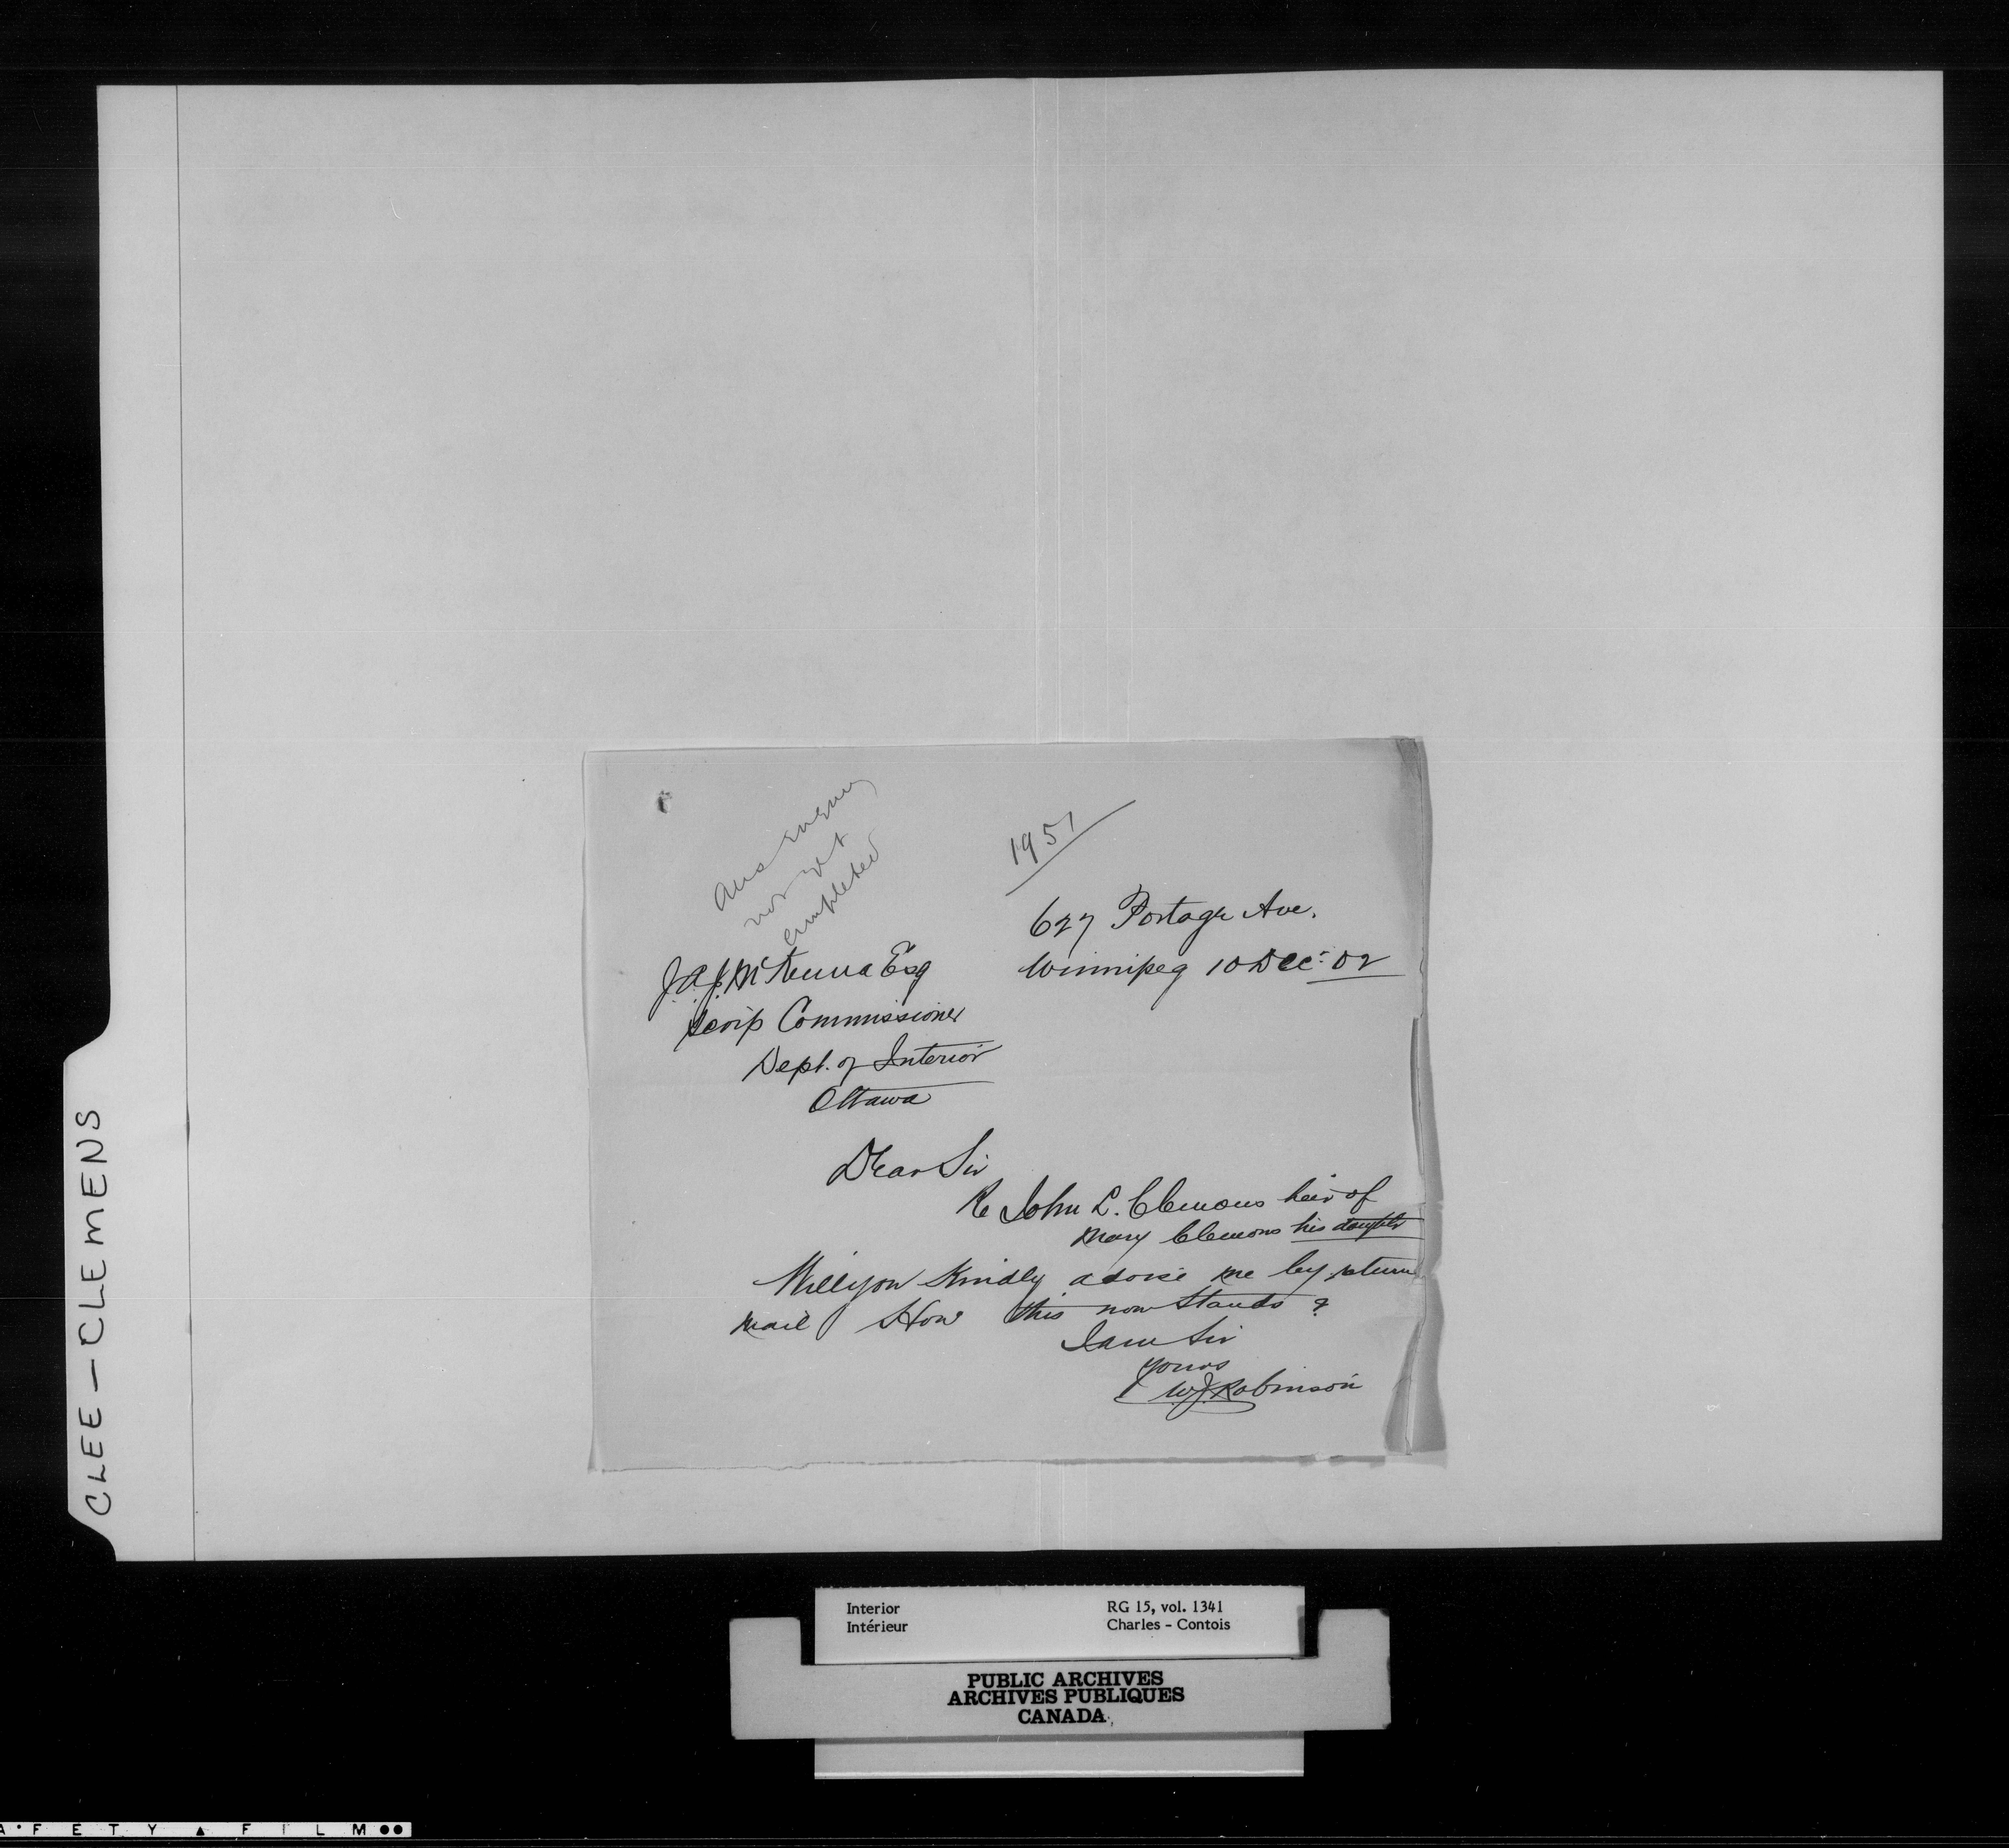 CLEE - CLEMENS
Ans enquiry
not yet
completed
1951
627 Portage Ave.
Winnipeg 10 Dec: 02
J.A.J. McKenna Esq
Scrip Commissioner
Dept. of Interior
Ottawa
Dear Sir
Re John L. Clemons heir of
Mary Clemons his daughter
Will you Kindly advise me by return
mail How this now Stands ?
I am Sir
Yours
W.J. Robinson
Interior
Intérieur
RG 15, vol. 1341
Charles - Contois
PUBLIC ARCHIVES
ARCHIVES PUBLIQUES
CANADA
A F E T Y ▲ F I L M ●●